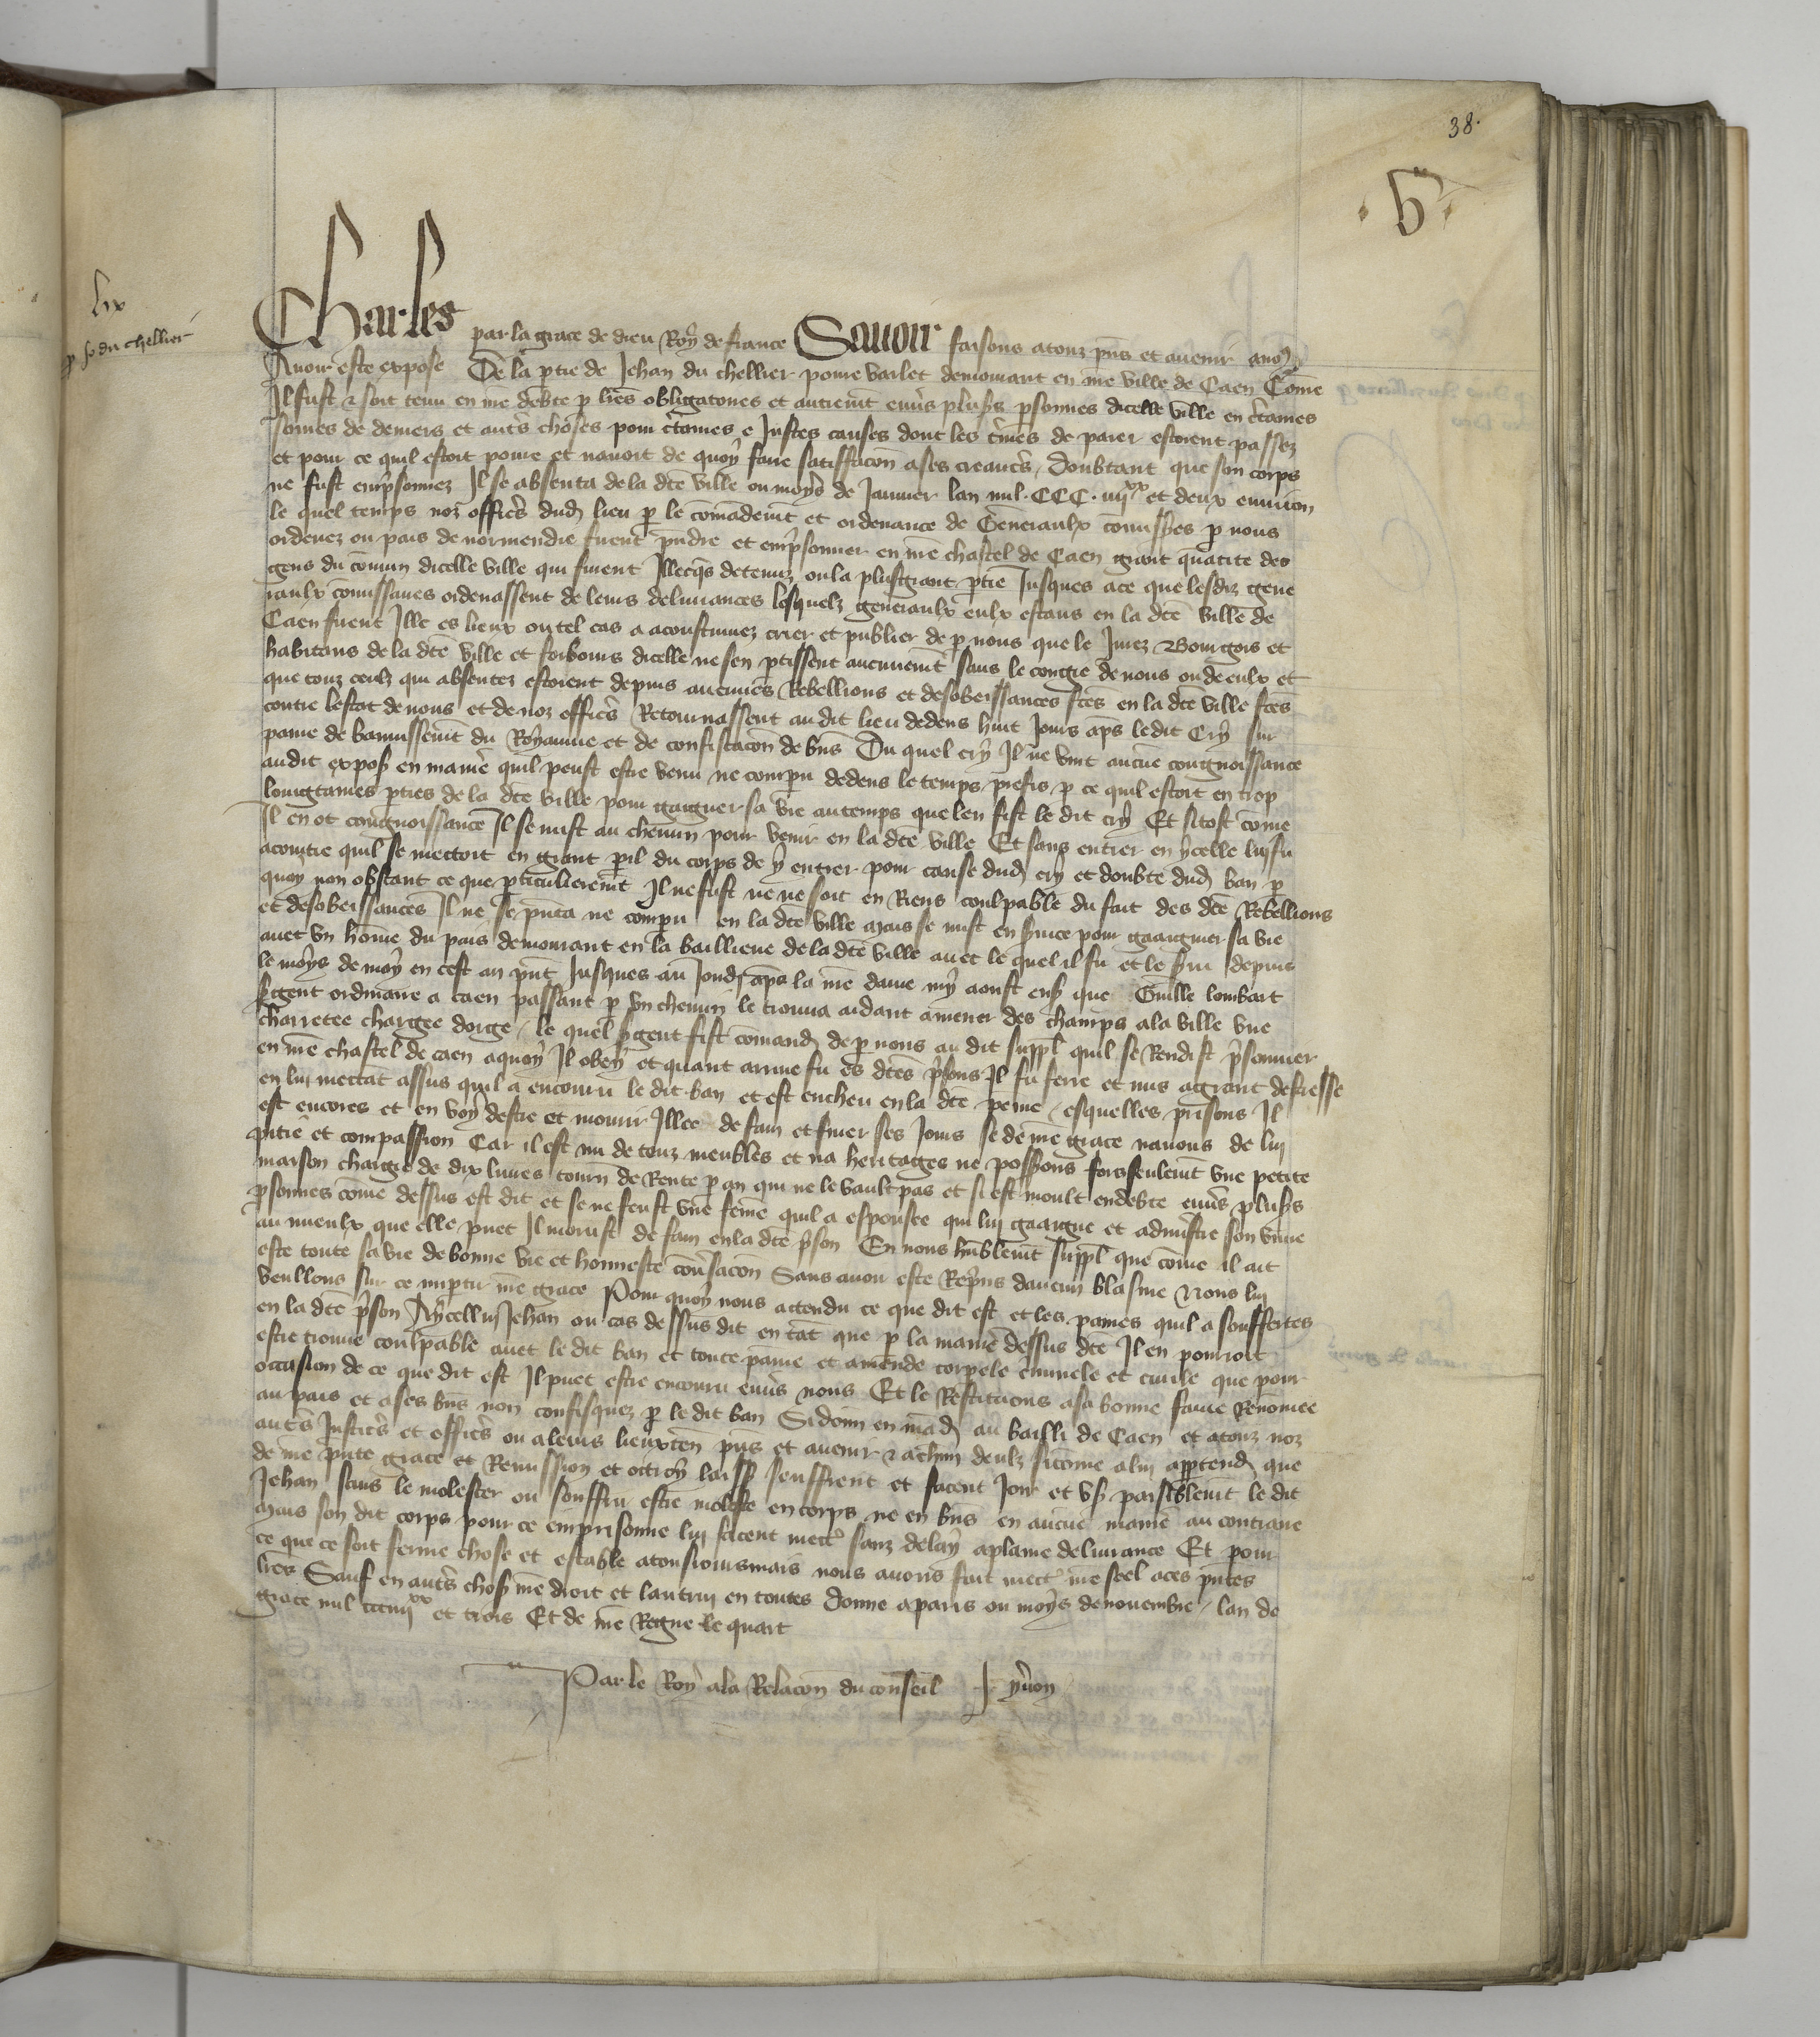 38.
.b.
lix
p Jo du chellier
Charles par la grace de dieu Roy de france Sauoir faisons atouz pns et auenir anoz
Auoir este expose De la ptie de Jehan du chellier poure varlet demourant en nre ville de Caen Come
Il fust & soit tenu en me debte p lres obligatoires et autremt enuers plusrs psonnes dicelle ville en ctaines
somes de deniers et auts choses pour ctaines e Justes causes dont les tmes de paier estoient passez
et pour ce quil estoit poure et nauoit de quoy faire satisffacon ases creancrs / doubtant que son corps
ne fust emprisonnez Il se absenta de la dte ville ou moys de Januier lan mil . CCC . iiijxx et deux enuiron
le quel temps noz officrs dud lieu p le comademt et ordenance de Generaulx comissres p nous
ordenez ou pais de normendie firent pndre et emprisonner en nre chastel de Caen grant quatite des
gens du comun dicelle ville qui furent Illecqs detenuz ou la plusgrant ptie Jusques ace que lesdiz gene
raulx comissaires ordenassent de leurs deliurances lesquelz generaulx eulx estans en la dte ville de
Caen firent Ille es lieux ou tel cas a acoustumez crier et publier de p nous que le Juiez Bourgois et
habitans de la dte ville et forbours dicelle ne sen ptissent aucunemt sans le congie de nous ou de eulx et
que touz ceulx qui absentez estoient depuis aucunes Rebellions et desobeissances ftes en la dte ville ftes
contre lestat de nous et de noz officrs Retournassent au dit lieu dedens huit Jours aps ledit Cry sur
paine de bannissemt du Royaume et de confiscacon de bns Du quel cry Il ne vint aucune congnoissance
audit expos en manie quil peust estre venu ne compu dedens le temps prefis p ce quil estoit en trop
longtaines pties de la dte ville pour gaigner sa vie autemps que len fist le dit cry Et sitost come
Il en ot congnoissance Il se mist au chemin pour venir en la dte ville Et sans entrer en ycelle luy fu
acointie quil se mectoit en grant pil du corps de y entrer pour cause dud cry et doubte dud ban p
quoy non obstant ce que pticulieremt Il ne fust ne ne soit en Riens coulpable du fait des dte Rebellions
et desobeissances Il ne se pnta ne compu en la dte ville Mais se mist en suice pour gaaigner sa vie
auec vn home du pais demourant en la bailliue de la dte ville auec le quel il fu et le sui depuis
le moys de may en cest an pnt Jusques au Joud aps la nre dame my aoust ens que Guille lombart
sgent ordinaire a caen passant p vn chemin le trouua aidant amener des champs ala ville vne
charretee chargee dorge / le quel sgent fist comand de p nous au dit suppl quil se Rendist prisonnier
en nre chastel de caen aquoy Il obey et quant arriue fu es dtes prisons Il fu ferre et mis agrant destresse
en lui mectat assus quil a encouru le dit ban et est encheu en la dte peine / esquelles prisons Il
est encores et en voy destre et mourir Illec de fain et finer ses Jours se de nre grace nauons de lui
pitie et compassion Car il est nu de touz meubles et na heritages ne possions fors seulemt vne petite
maison chargie de dix liures tourn de Rente p an qui ne le vault pas et si est moult endebte enuers plusrs
psonnes come dessus est dit et se ne feust vne feme quil a espousee qui lui gaaigne et admistre son viure
au mieulx que elle puet Il morust de fain en la dte prison En nous hublemt suppl que come il ait
este toute sa vie de bonne vie et honneste conuersacon Sans auoir este Repris daucun blasme Nous lui
veullons sur ce impartir nre grace Pour quoy nous actendu ce que dit est et les paines quil a souffertes
en la dte prison Aycellui Jehan ou cas dessus dit en tat que p la maniere dessus dte Il en pourroit
estre trouue coulpable auec le dit ban et toute paine et amende corpele criminele et ciuile que pour
occasion de ce que dit est Il puet estre encouru enuers nous Et le Restituons asa bonne fame Renomee
au pais et ases bns non confisquez p le dit ban Si donn en mad au bailli de Caen et atouz noz
auts Justicrs et officrs ou aleurs lieuxten pns et auenir & achun deulz sicome alui apptend que
de nre pnte grace et Remission et octroy laiss seuffrent et facent Joir et vs paisiblemt le dit
Jehan sans le molester ou souffrir estre moleste en corps ne en bns en aucue manie au contraire
Mais son dit corps pour ce emprisonne lui facent mect sanz delay aplaine deliurance Et pour
ce que ce soit ferme chose et estable atousiours mais nous auons fait mect nre seel aces pntes
lres Sauf en auts chos nre droit et lautrui en toutes Donne aparis ou moys de nouembre / lan de
grace mil ccciiijxx et trois Et de nre Regne le quart
Par le Roy ala Relacon du conseil J. yuon